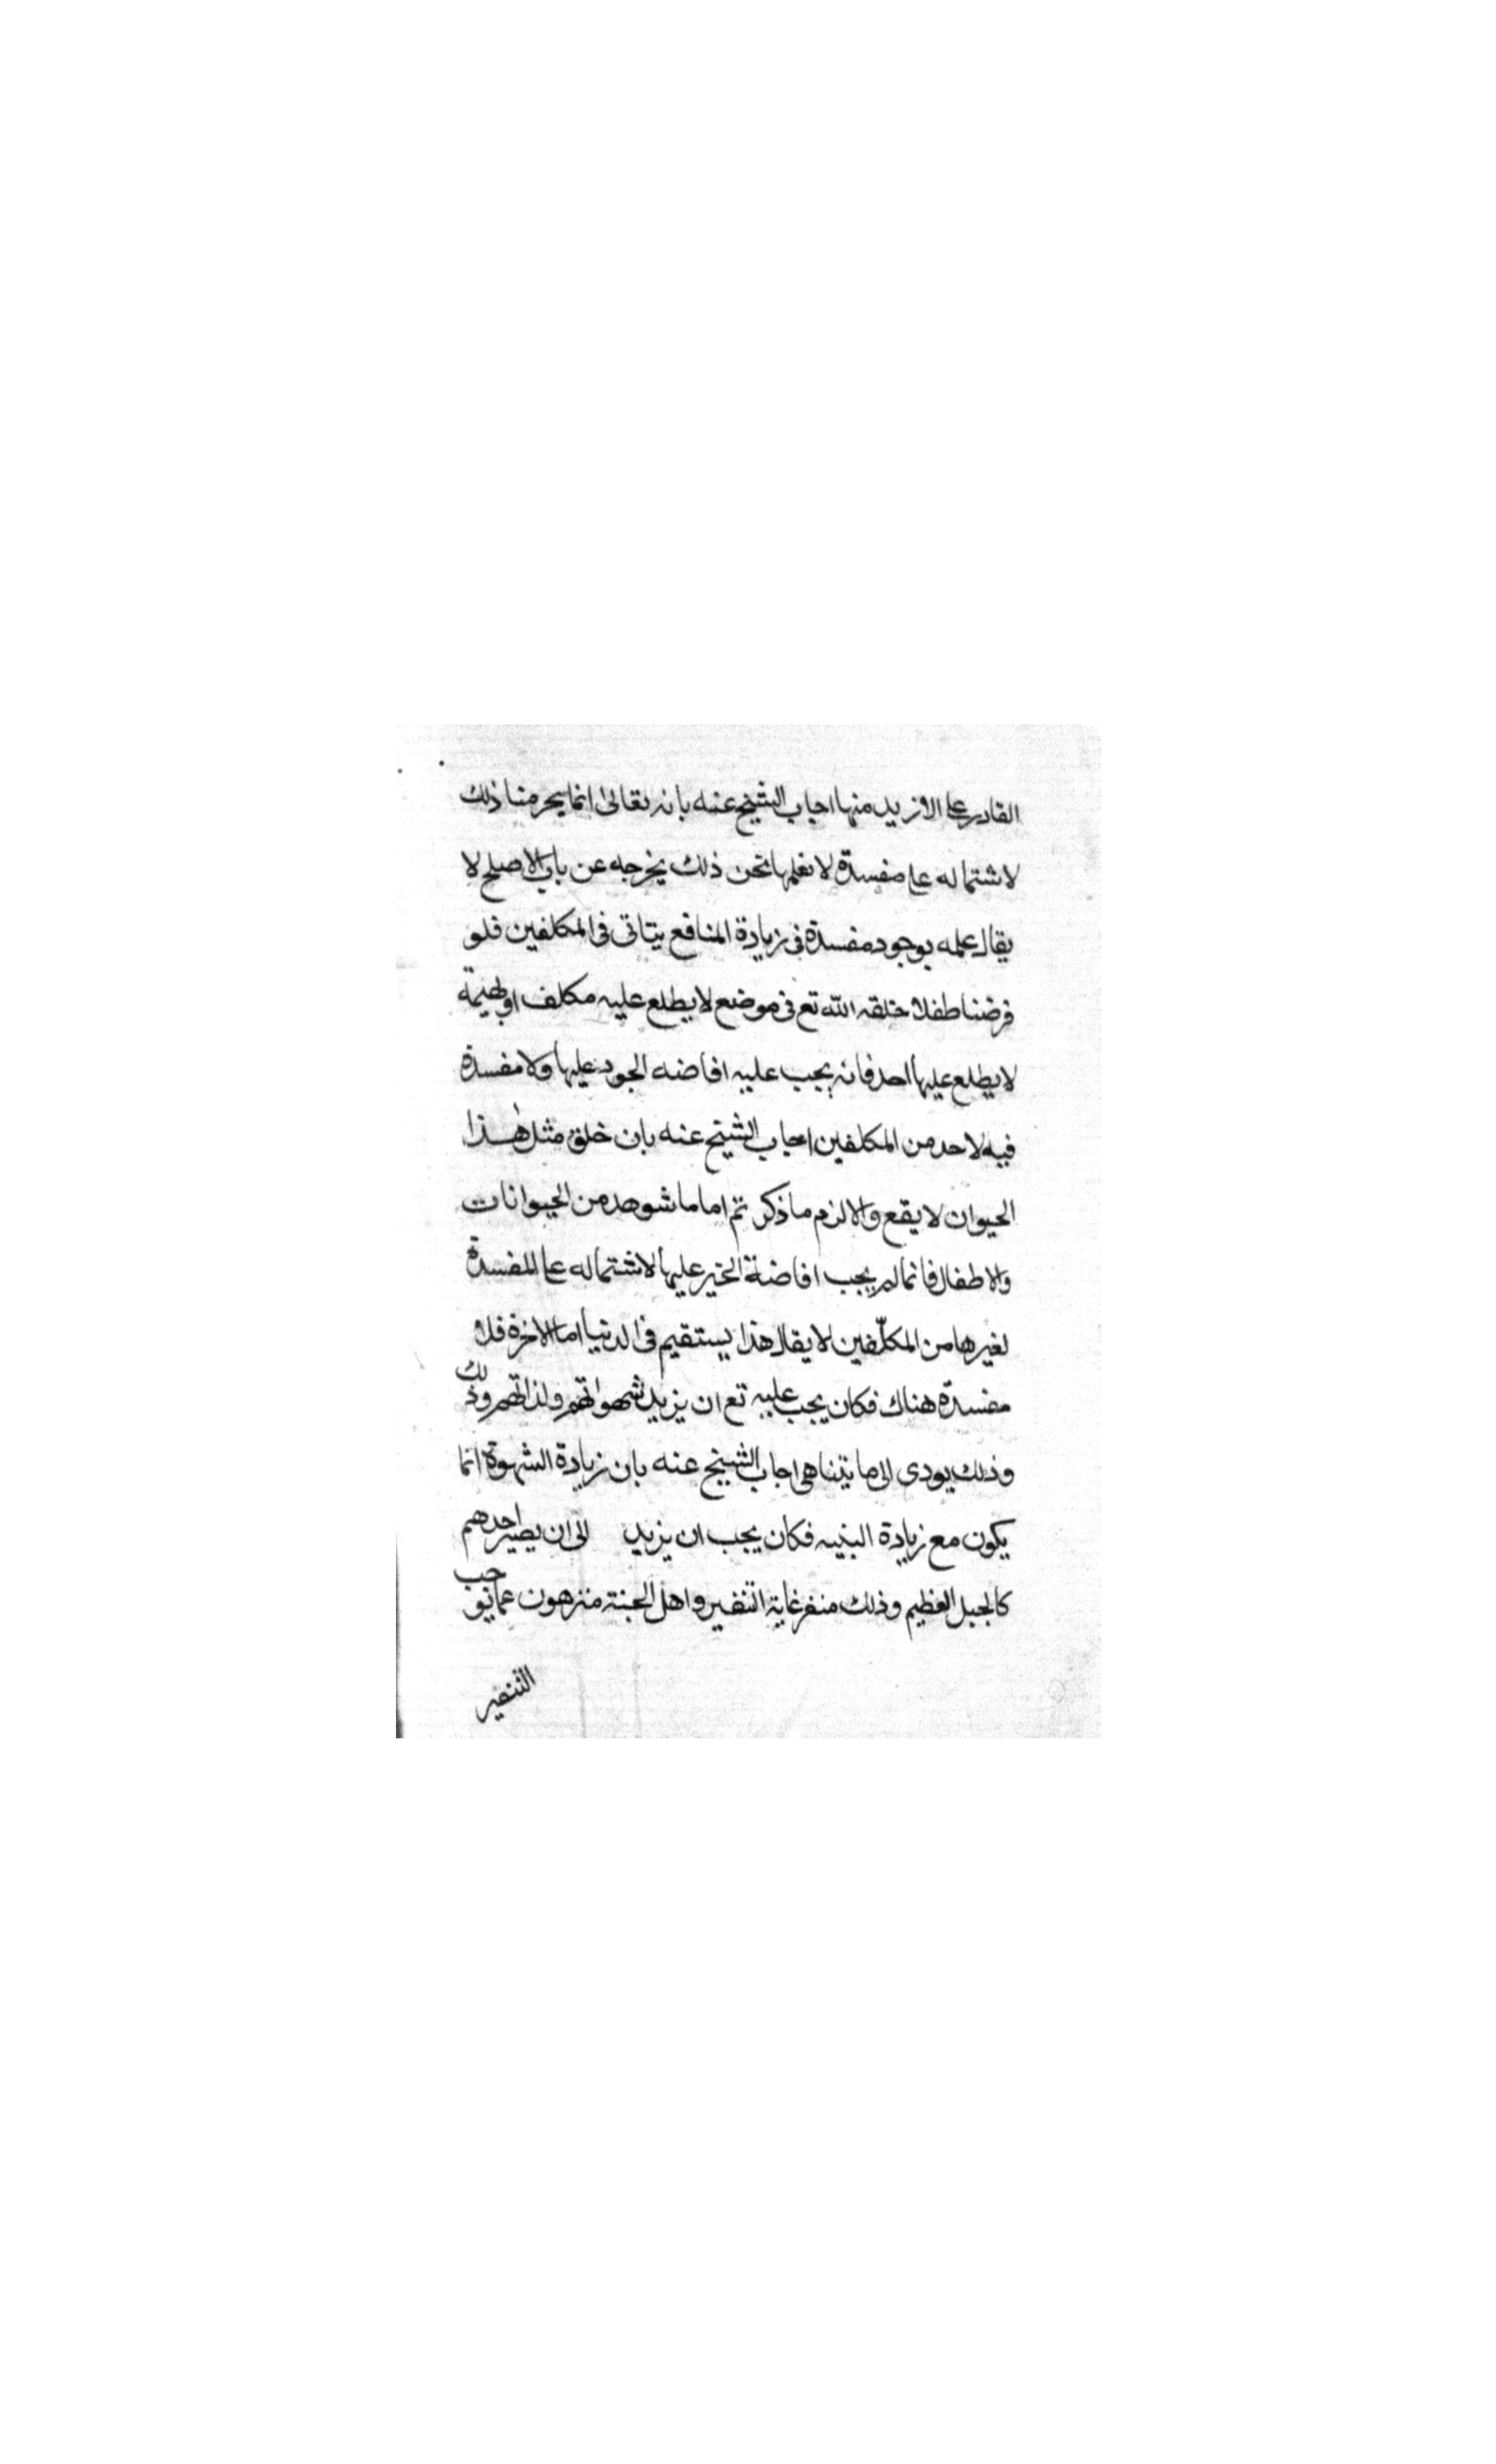 القادر على الازيد منها اجاب الشيخ عنه بانه تعالى انما يحرمنا ذلك
لاشتماله على مفسدة لا نعلمها نحن ذلك يخرجه عن باب الاصلح لا
يقال علمه بوجود مفسدة فى زيادة المنافع يتاتى فى المكلفين فلو
فرضنا طفلا خلقه الله تع فى موضع لا يطلع عليه مكلف او بهيمة
لا يطلع عليها احد فانه يجب عليه افاضه الجود عليها ولا مفسدة
فيه لاحد من المكلفين اجاب الشيخ عنه بان خلق مثل هذا
الحيوان لا يقع والا لزم ما ذكرتم اما ما شوهد من الحيوانات
والاطفال فانما لم يجب افاضة الخير عليها لاشتماله على المفسدة
لغيرها من المكلّفين لا يقال هذا يستقيم فى الدنيا اما الاخرة فلا
مفسدة هناك فكان يجب عليه تع ان يزيد شهواتهم ولذاتهم وذلك
وذلك يودى الى ما يتناهى اجاب الشيخ عنه بان زيادة الشهوة انما
يكون مع زيادة البنيه فكان يجب ان يزيد الى ان يصير احدهم
كالجبل العظيم وذلك منفر غاية التنفير واهل الجنة منزهون عما يوجب
التنفير